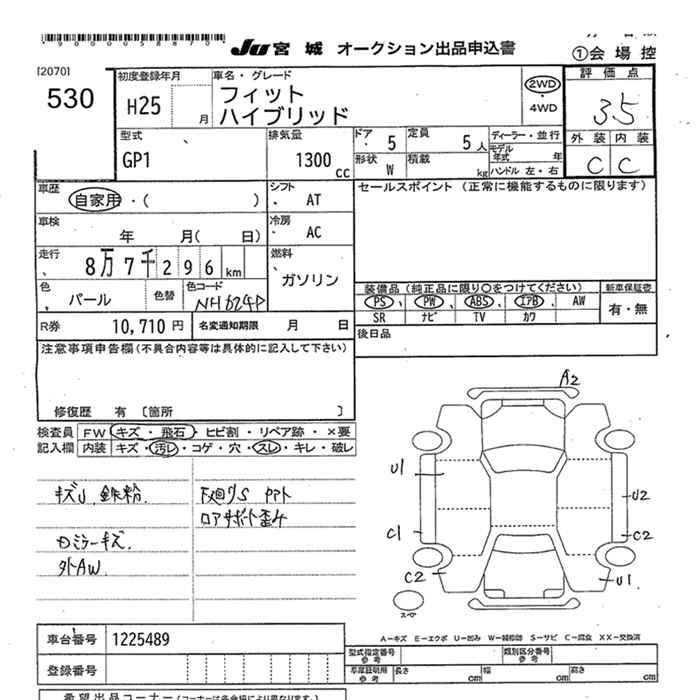 *90005887 0*
JU 宮城 オークション出品申込書
①会場控
[2070]
530
初度登録年月
H25
月
車名・グレード
フィット
ハイブリッド
2WD
・
4WD
評価点
3.5
外装 内装
C C
型式
GP1
排気量
1300 cc
ドア
5
定員
5 人
形状
W
積載
kg
ディーラー・並行
モデル年式 年
ハンドル 左・右
車歴
自家用・( )
シフト
AT
セールスポイント (正常に機能するものに限ります)
車検
年 月( 日)
冷房
AC
走行
8万7千296 km
燃料
ガソリン
色
パール
色替
色コード
NH624P
装備品 (純正品に限り○をつけてください)
新車保証書
PS、PW、ABS、エアB、AW
有・無
SR ナビ TV カワ
R券 10,710 円
名変通知期限 月 日
後日品
注意事項申告欄 (不具合内容等は具体的に記入して下さい)
修復歴 有 〔箇所 〕
検査員 FW キズ・飛石・ヒビ割・リペア跡・×要
記入欄 内装 キズ・汚レ・コゲ・穴・スレ・キレ・破レ
キズU 鉄粉.
ロアサポート歪み
ミラーキズ.
外AW.
A2
U1
U2
C1
C2
C2
U1
スペア
A－キズ E－エクボ U－凹み W－補修跡 S－サビ C－腐食 XX－交換済
車台番号 1225489
型式指定番号 参考
類別区分番号 参考
登録番号
車庫証明用 参考
長さ cm
幅 cm
高さ cm
希望出品コーナー